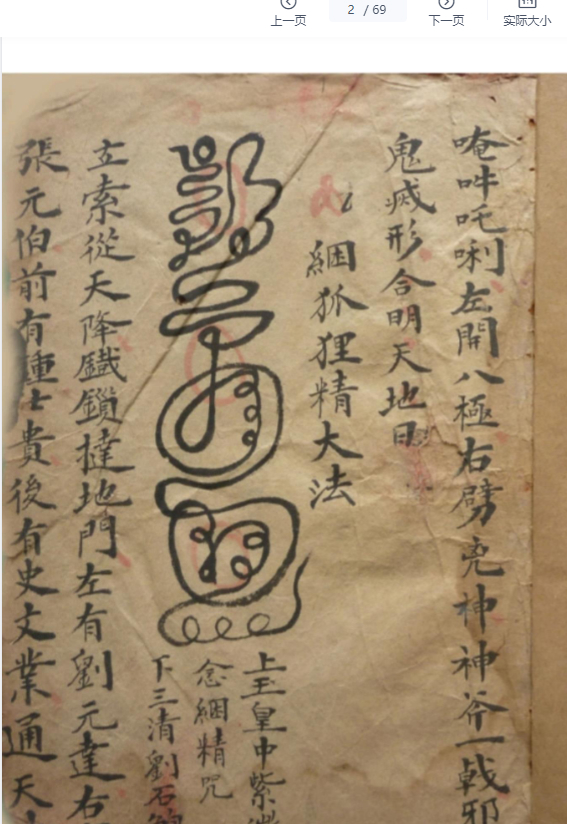 上一页
2 / 69
下一页
实际大小
唵吽吒唎左開八極右劈兇神神斧一戟邪
鬼滅形合明天地日
綑狐狸精大法
上玉皇中紫微
念綑精咒
下三清劉石
立索從天降鐵鎖撻地門左有劉元達右
張元伯前有鍾士貴後有史文業通天